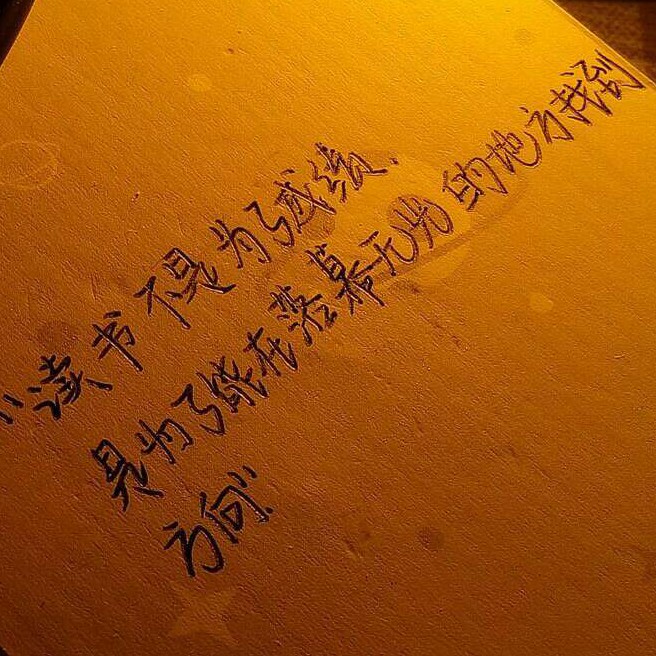 “读书不是为了成绩.
是为了能在落幕无光的地方找到
方向”